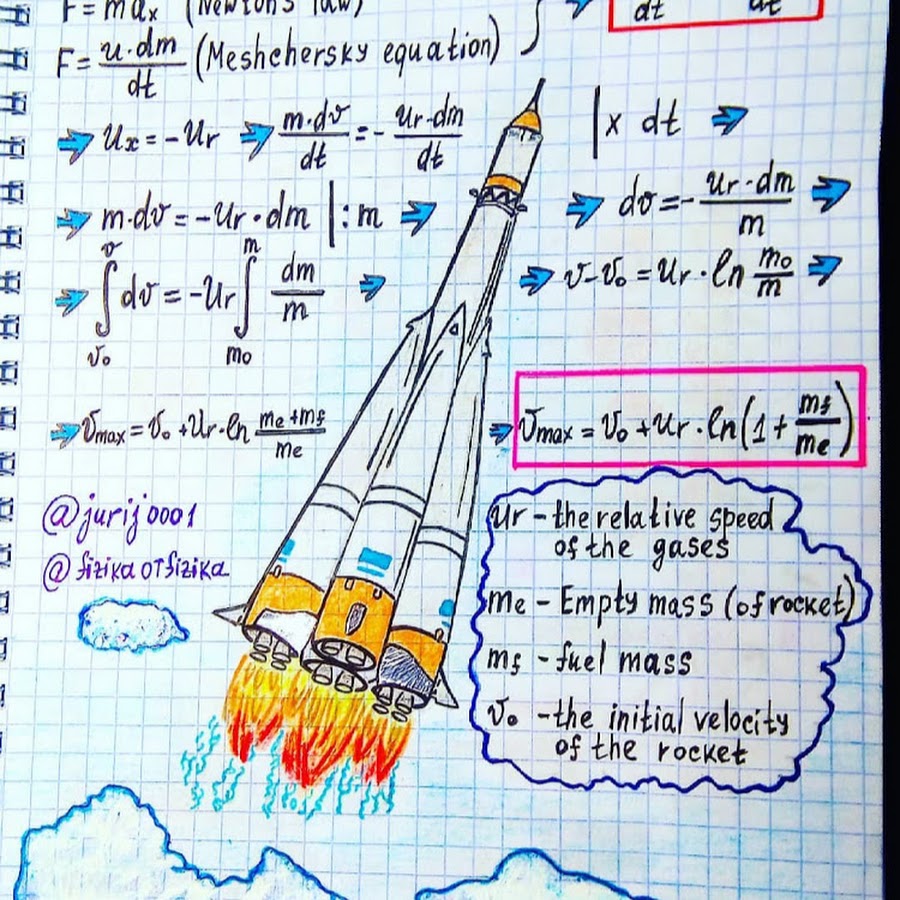 F = max (Newton's law)
dt dt
F = u·dm/dt (Meshchersky equation)
ux = -ur m·dv/dt = - ur·dm/dt | x dt
m·dv = -ur·dm | :m dv = - ur·dm/m
∫ᵥ₀ᵛ dv = -ur ∫ₘ₀ᵐ dm/m v-v₀ = ur·ln m₀/m
vmax = v₀ + ur·ln me+mf/me vmax = v₀ + ur·ln(1 + mf/me)
@jurij0001
@fizikaoTfizika
ur - the relative speed
of the gases
me - Empty mass (of rocket)
mf - fuel mass
v₀ - the initial velocity
of the rocket